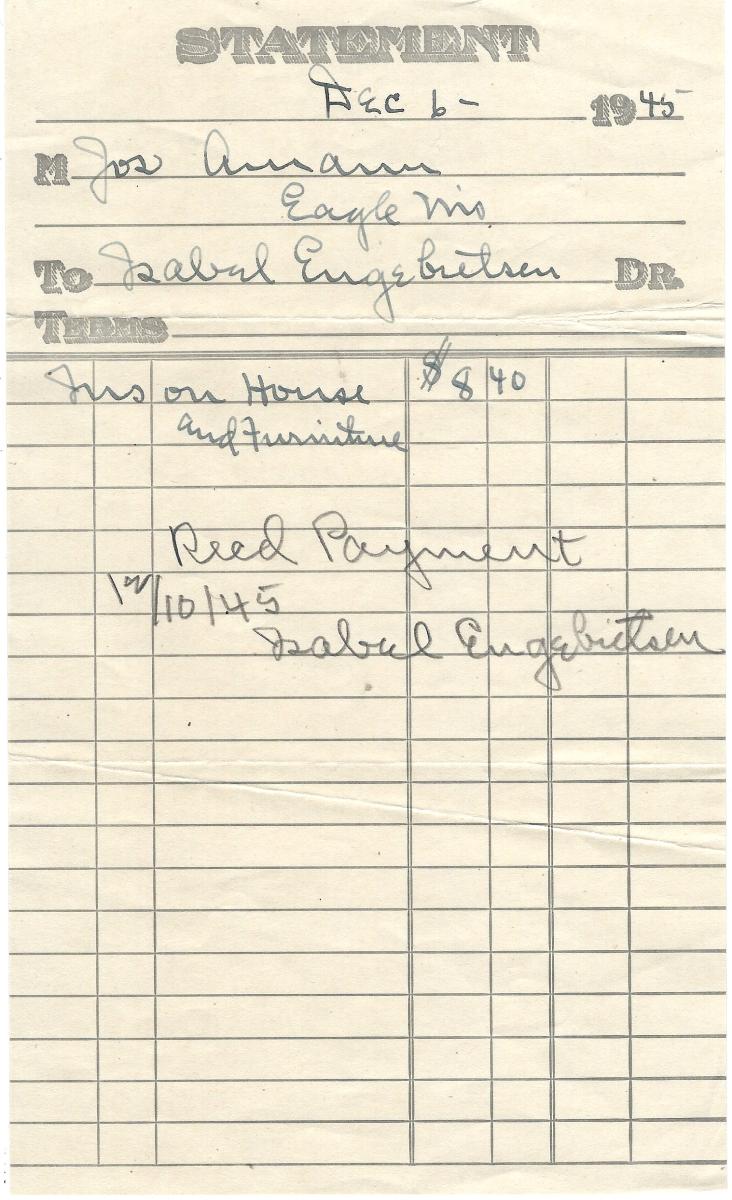 STATEMENT
Dec 6 - 1945
M Jos Amann
Eagle Wis
To Isabel Engebretsen Dr.
Terms
Ins on House $ 8 40
and Furniture
Recd Payment
12/10/45
Isabel Engebretsen